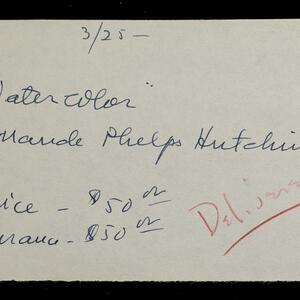 3/25-
Watercolor"
Maude Phelps Hutchin
ice - $50 00
urance - $50 00
Delivere